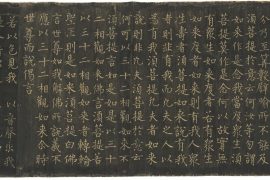 分乃至算數譬喻所不能及
須菩提於意云何汝等勿謂
如來作是念我當度眾生須
菩提莫作是念何以故實無
有眾生如來度者若有眾生
如來度者如來則有我人眾
生壽者須菩提如來說有我
者則非有我而凡夫之人以
為有我須菩提凡夫者如來
說則非凡夫須菩提於意云
何可以三十二相觀如來不
須菩提言如是如是以三十
二相觀如來佛言須菩提若
以三十二相觀如來者轉輪
聖王則是如來須菩提白佛
言世尊如我解佛所說義不
應以三十二相觀如來爾時
世尊而說偈言
若以色見我 以音聲求我